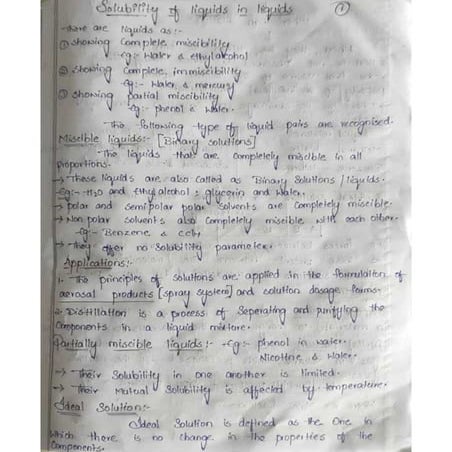 Solubility of liquids in liquids
①
There are liquids as :-
① showing Complete miscibility
eg:- Water & ethyl alcohol
② showing Complete immiscibility
eg:- Water & mercury
③ showing partial miscibility
eg:- phenol & Water.
The following type of liquid pairs are recognised.
Miscible liquids:- [Binary solutions]
The liquids that are completely miscible in all
proportions.
→ These liquids are also called as Binary Solutions / liquids.
Eg:- H2O and ethyl alcohol & glycerin and Water.
→ polar and semipolar polar Solvents are Completely miscible.
→ Non polar solvents also Completely miscible with each other.
Eg:- Benzene & CCl4
→ They offer no Solubility parameter.
Applications:-
1. The principles of Solutions are applied in the formulation of
aerosal products [spray system] and solution dosage forms.
2. Distillation is a process of Seperating and purifying the
Components in a liquid mixture.
Partially miscible liquids :- Eg:- phenol in water.
Nicotine & Water.
→ Their Solubility in one another is limited.
→ Their Mutual Solubility is affected by temperature.
Ideal Solution:-
Ideal Solution is defined as the One in
Which there is no change in the properties of the
Components.